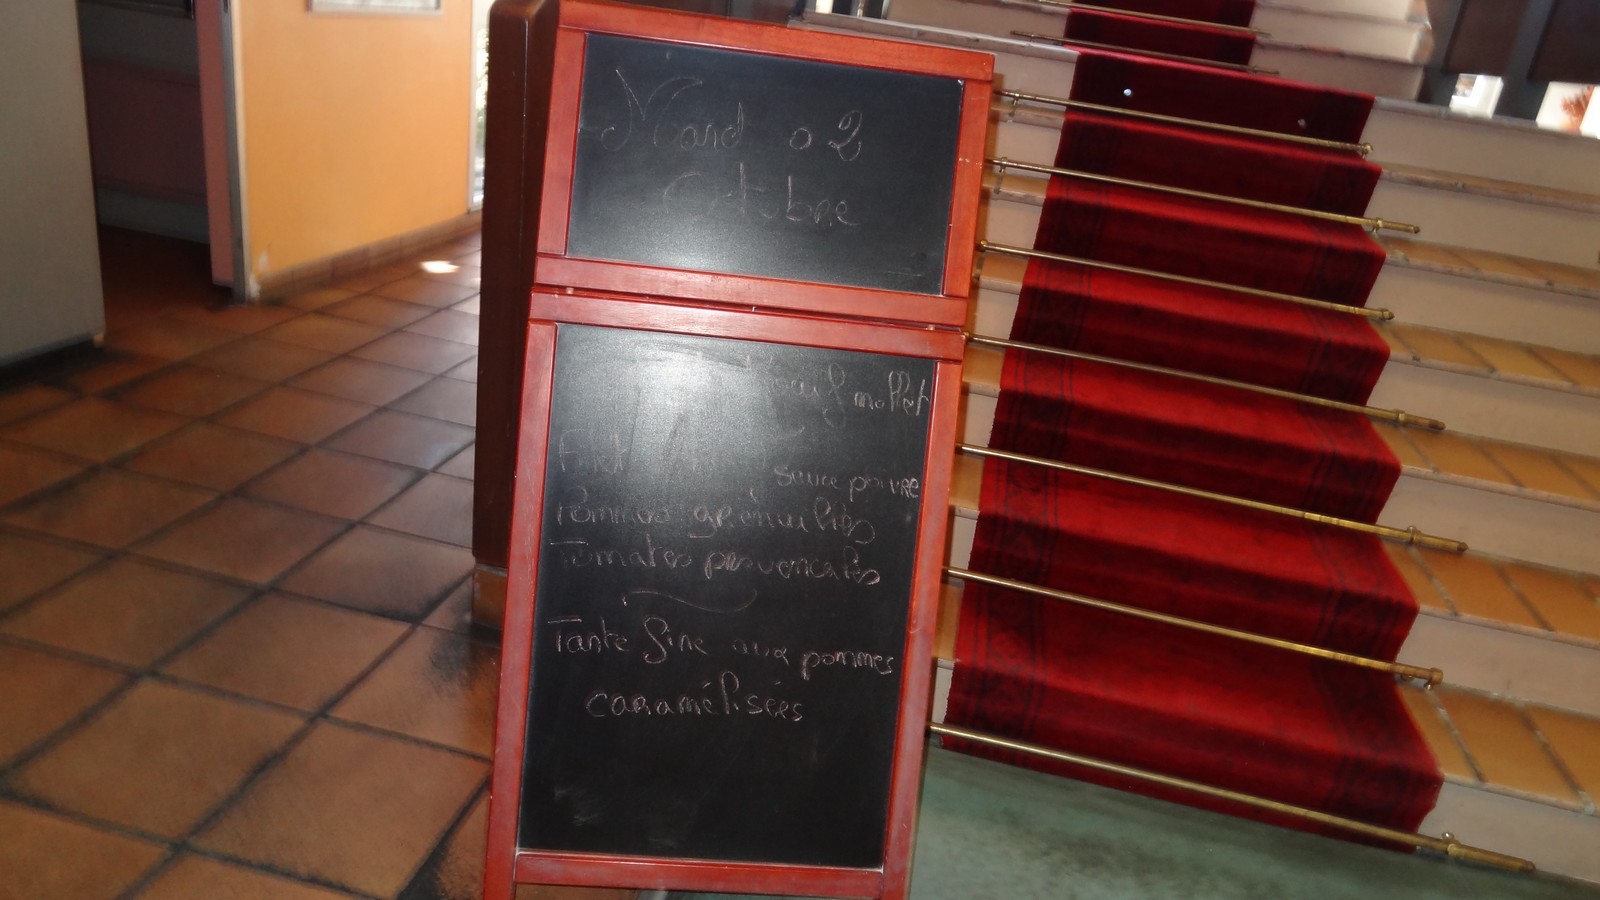 Mardi 02
Octobre
l'oeuf mollet
Filet
Sauce poivre
Pommes grenailles
Tomates provencales
Tarte fine aux pommes
caramélisées